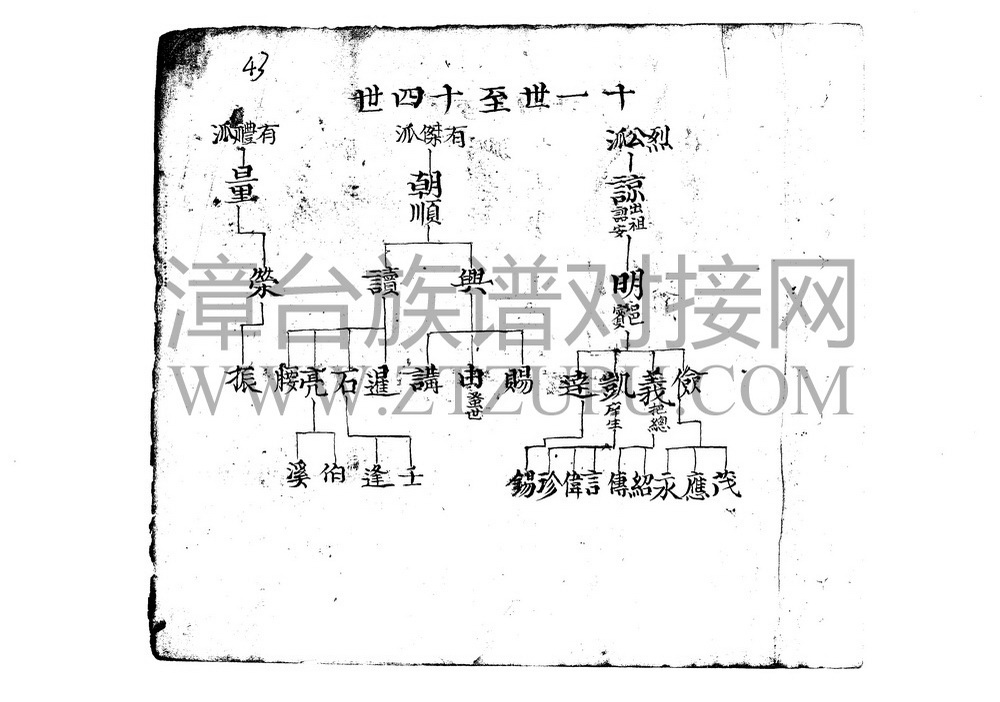 43
十一世至十四世
烈公派
諒
出祖
詔安
明
邑賓
儉
義
把總
凱
庠生
達
茂
應
永
紹
傳
言
偉
珍
錫
有傑派
朝順
興
讀
賜
由
講
暹
石
亮
腰
壬
逢
伯
溪
有禮派
量
榮
振
漳台族谱对接网
WWW.ZTZUPU.COM